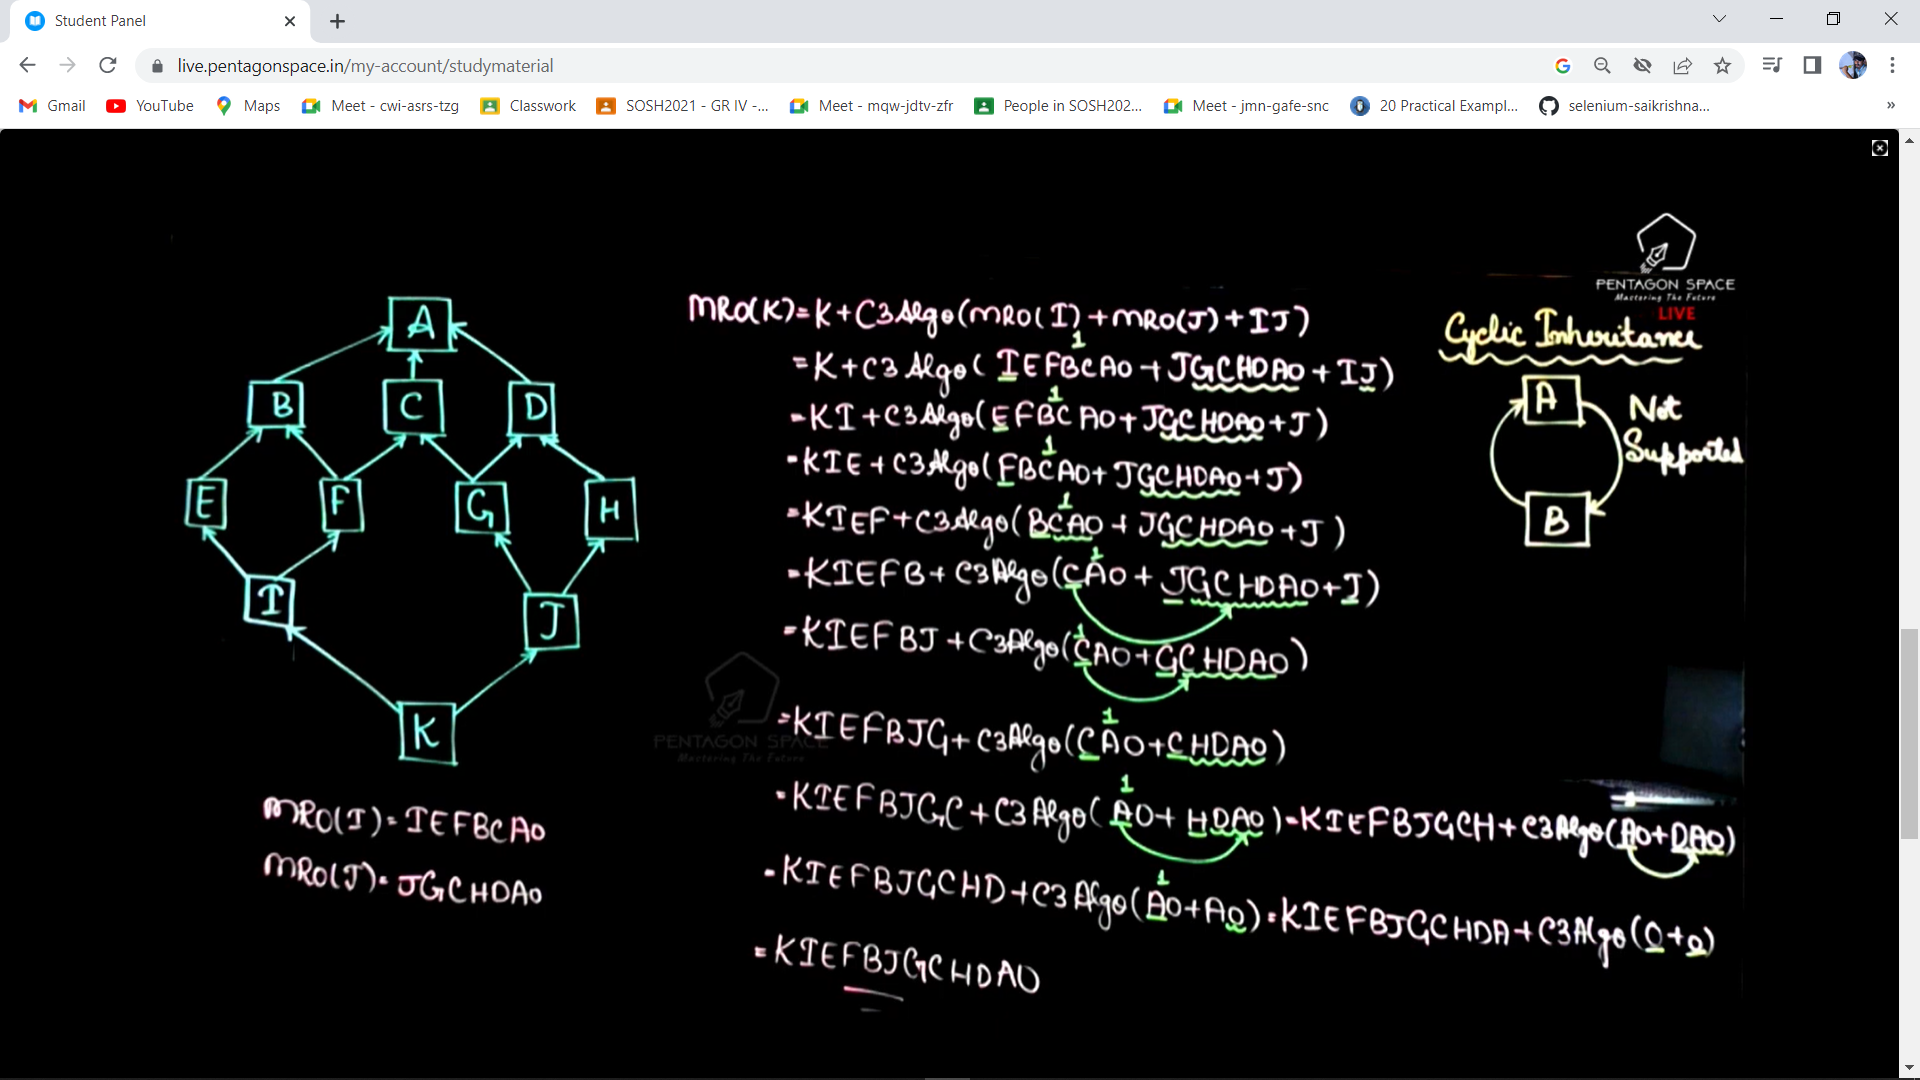 Student Panel
live.pentagonspace.in/my-account/studymaterial
Gmail YouTube Maps Meet - cwi-asrs-tzg Classwork SOSH2021 - GR IV -... Meet - mqw-jdtv-zfr People in SOSH202... Meet - jmn-gafe-snc 20 Practical Exampl... selenium-saikrishna... »
PENTAGON SPACE
Mastering The Future
LIVE
A
B C D
E F G H
I J
K
MRO(I)= IEFBCAO
MRO(J)= JGCHDAO
MRO(K)= K+C3Algo(MRO(I)+MRO(J)+IJ)
1
=K+C3 Algo( IEFBCAO + JGCHDAO + IJ)
1
=KI+C3Algo(EFBCAO+JGCHDAO+J)
1
=KIE+C3Algo(FBCAO+ JGCHDAO+J)
1
=KIEF+C3Algo(BCAO + JGCHDAO +J)
1
=KIEFB+ C3Algo(CAO + JGCHDAO+J)
1
=KIEFBJ +C3Algo(CAO+GCHDAO)
1
=KIEFBJG+ C3Algo(CAO+CHDAO)
1
=KIEFBJGC + C3 Algo( AO+ HDAO)=KIEFBJGCH+C3Algo(AO+DAO)
1
=KIEFBJGCHD+C3 Algo(AO+AO)=KIEFBJGCHDA+C3Algo(O+O)
=KIEFBJGCHDAO
Cyclic Inheritance
A
Not
Supported
B
PENTAGON SPACE
Mastering The Future